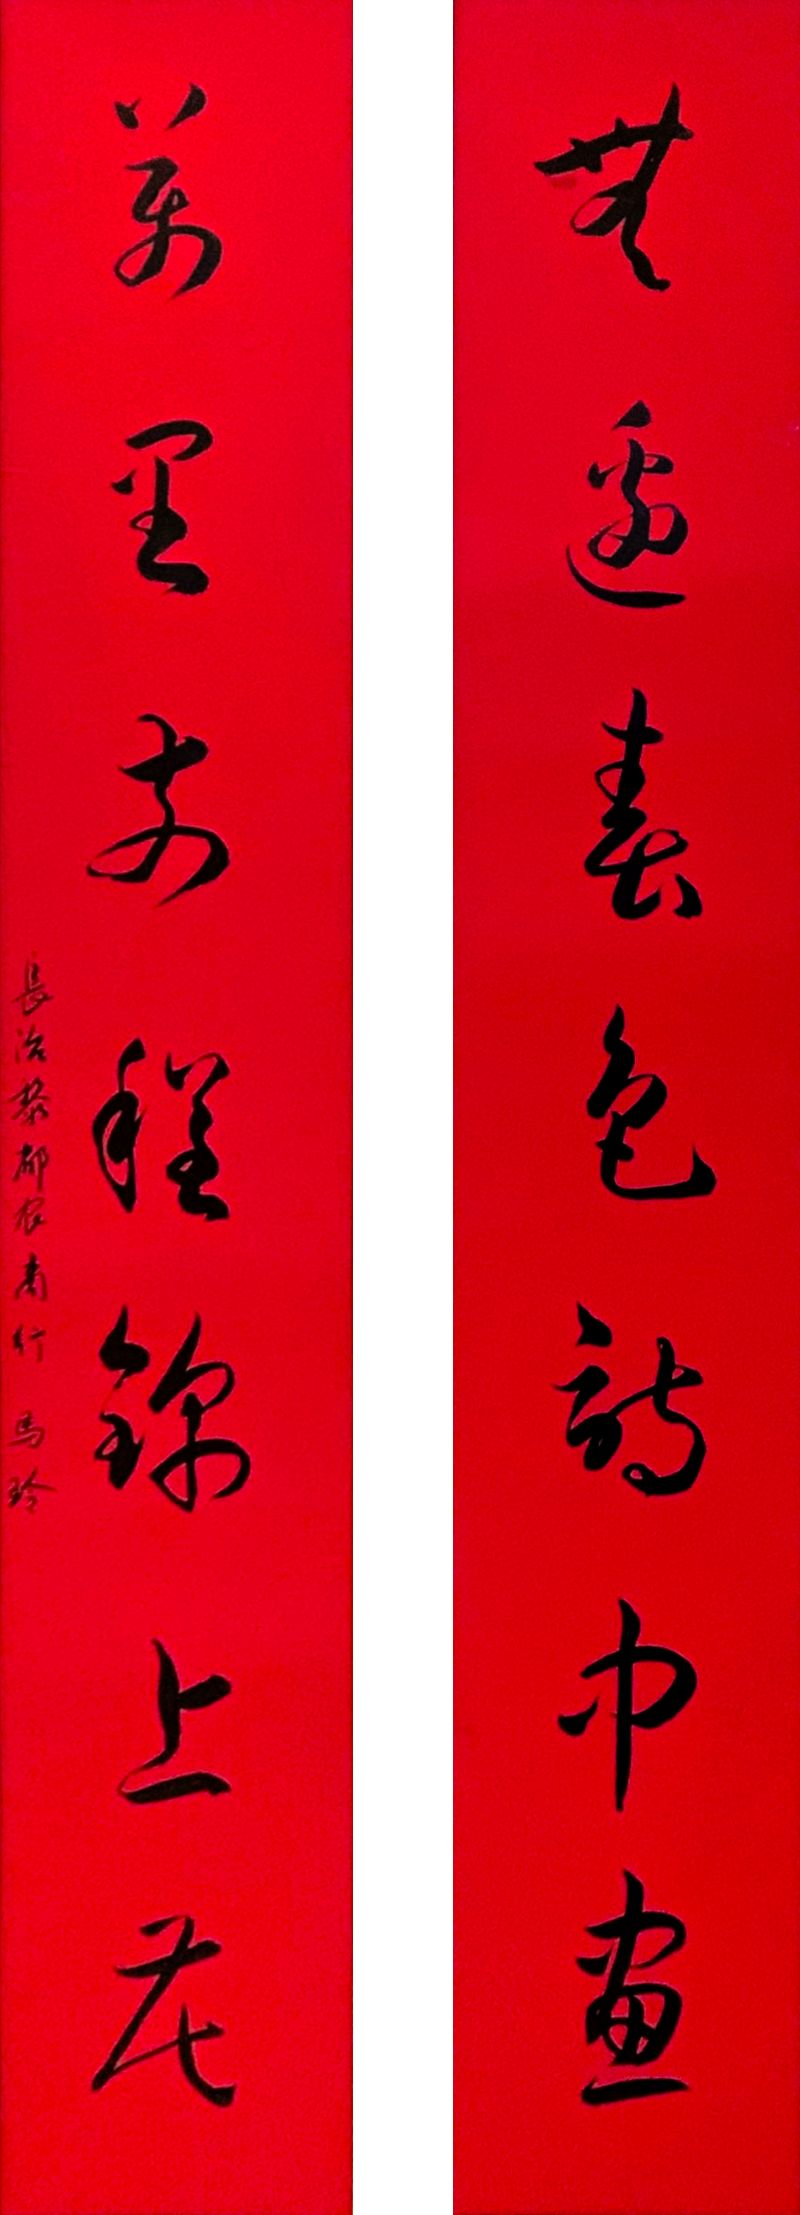 無邊春色詩中畫
萬里前程錦上花
長治黎都農商行 馬玲